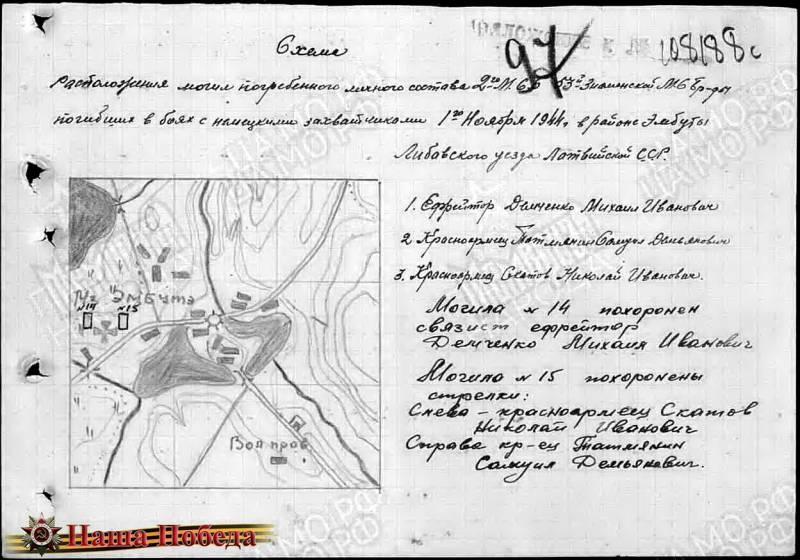 Схема
97
108188с
Расположения могил погребенного личного состава 2го М.С.Б 53й Знаменской М.С.Бр-ды
погибших в боях с немецкими захватчиками 1го Ноября 1944г в районе Эмбуты
Либавского уезда Латвийской ССР.
1. Ефрейтор Демченко Михаил Иванович
2. Красноармеец Татмянин Самуил Демьянович
3. Красноармеец Скатов Николай Иванович.
Могила №14 похоронен
связист ефрейтор
Демченко Михаил Иванович
Могила №15 похоронены
стрелки:
Слева - красноармеец Скатов
Николай Иванович
Справа кр-ец Татмянин
Самуил Демьянович.
Эмбуте
№14 №15
Наша Победа